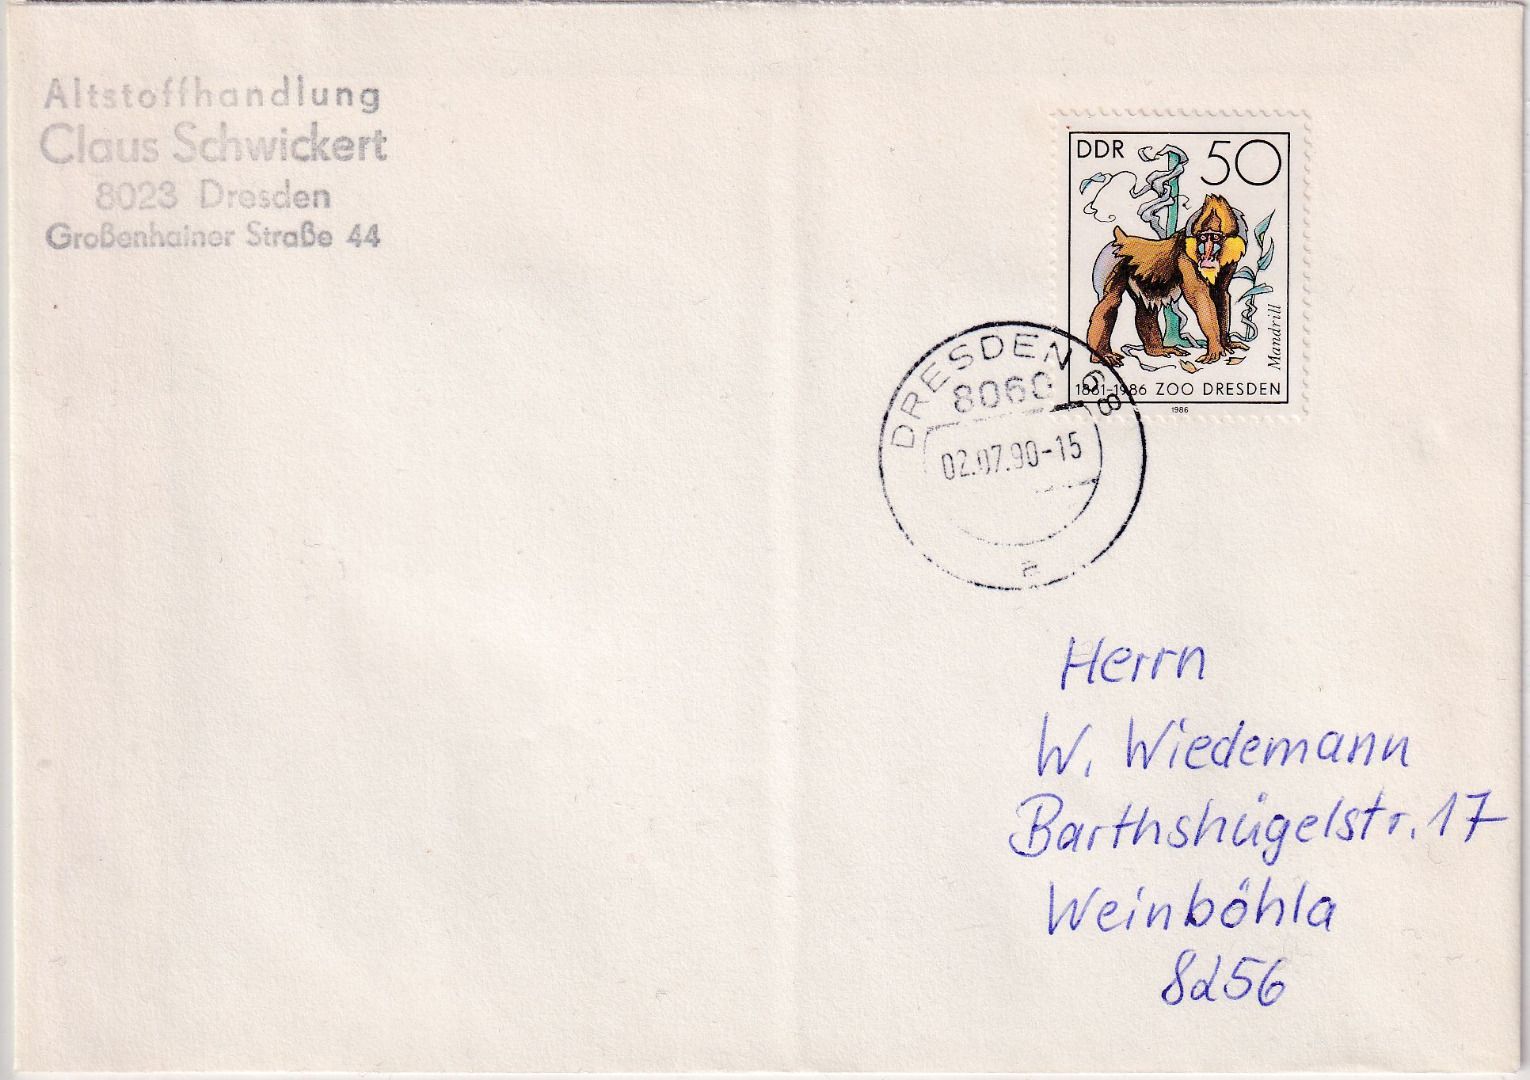 Altstoffhandlung
Claus Schwickert
8023 Dresden
Großenhainer Straße 44
DDR 50
Mandrill
1861-1986 ZOO DRESDEN
1986
DRESDEN 68
8060
02.07.90-15
a
Herrn
W. Wiedemann
Barthshügelstr. 17
Weinböhla
8256